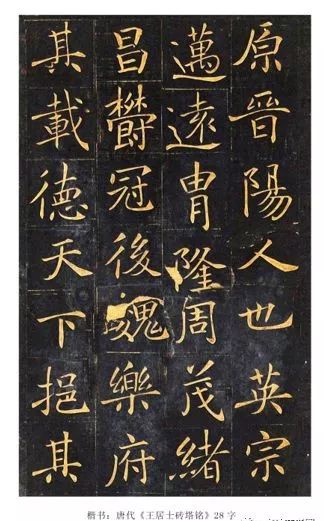 原晋陽人也英宗
邁遠胄隆周茂緒
昌欝冠後魏樂府
其載德天下挹其
楷书：唐代《王居士砖塔铭》28字